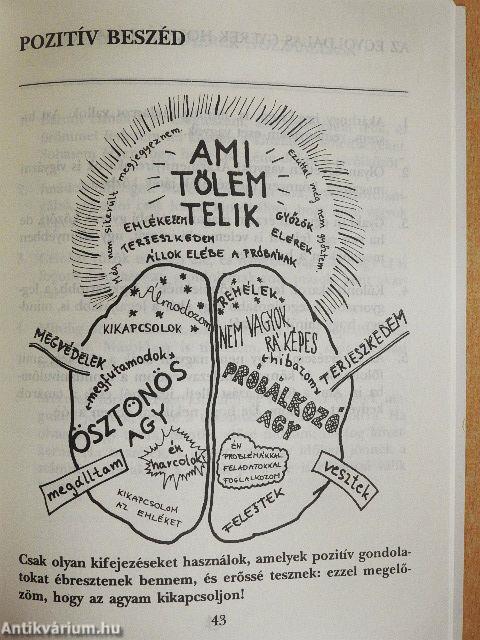 POZITÍV BESZÉD
Még nem sikerült megjegyeznem.
AMI
TŐLEM
TELIK
ezúttal még nem győztem.
EMLÉKEZEM
TERJESZKEDEM
GYŐZÖK
ELÉREK
ÁLLOK ELÉBE A PRÓBÁNAK
Álmodozom
KIKAPCSOLOK
MEGVÉDELEK
megfutamodok
ÖSZTÖNÖS
AGY
én
harcolok
megálltam
KIKAPCSOLOM
AZ EMLÉKET
REMÉLEK
NEM VAGYOK
RÁ KÉPES
hibázom
TERJESZKEDEM
PRÓBÁLKOZÓ
AGY
ÉN
PROBLÉMÁKKAL
FELADATOKKAL
FOGLALKOZOM
vesztek
FELEJTEK
Csak olyan kifejezéseket használok, amelyek pozitív gondola-
tokat ébresztenek bennem, és erőssé tesznek: ezzel megelő-
zöm, hogy az agyam kikapcsoljon!
43
Antikvárium.hu